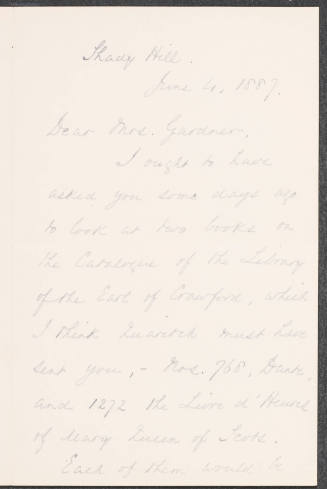 Shady Hill.
June 4, 1887.
Dear Mrs. Gardner,
I ought to have
asked you some days ago
to look at two books on
the Catalogue of the Library
of the Earl of Crawford, which
I think Quaritch must have
sent you, - Nos. 768, Dante,
and 1272 the Livre d'Heures
of Mary Queen of Scots.
Each of them would be